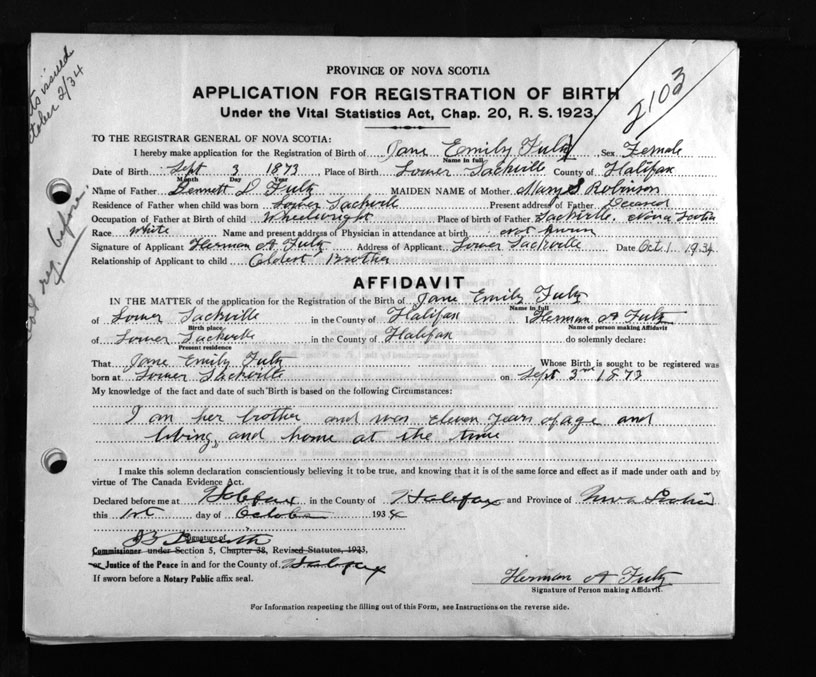 PROVINCE OF NOVA SCOTIA
APPLICATION FOR REGISTRATION OF BIRTH
Under the Vital Statistics Act, Chap. 20, R. S. 1923.
2103
issued
October 2/34
reg. before.
TO THE REGISTRAR GENERAL OF NOVA SCOTIA:
I hereby make application for the Registration of Birth of Jane Emily Fultz Sex Female
Name in full
Date of Birth Sept 3 1873 Place of Birth Lower Sackville County of Halifax
Month Day Year
Name of Father Bennett D Fultz MAIDEN NAME of Mother Mary S Robinson
Residence of Father when child was born Lower Sackville Present address of Father Deceased
Occupation of Father at Birth of child Wheelwright Place of birth of Father Sackville, Nova Scotia
Race White Name and present address of Physician in attendance at birth not known
Signature of Applicant Herman A Fultz Address of Applicant Lower Sackville Date Oct 1 1934
Relationship of Applicant to child Oldest Brother
AFFIDAVIT
IN THE MATTER of the application for the Registration of the Birth of Jane Emily Fultz
Name in full
of Lower Sackville in the County of Halifax I, Herman A Fultz
Birth place Name of person making Affidavit
of Lower Sackville in the County of Halifax do solemnly declare:
Present residence
That Jane Emily Fultz Whose Birth is sought to be registered was
born at Lower Sackville on Sept 3rd 1873
My knowledge of the fact and date of such Birth is based on the following Circumstances:
I am her brother and was eleven years of age and
living, and home at the time
I make this solemn declaration conscientiously believing it to be true, and knowing that it is of the same force and effect as if made under oath and by
virtue of The Canada Evidence Act.
Declared before me at Halifax in the County of Halifax and Province of Nova Scotia
this 1st day of October 1934
Signature of
Commissioner under Section 5, Chapter 38, Revised Statutes, 1923,
or Justice of the Peace in and for the County of Halifax
If sworn before a Notary Public affix seal.
Herman A Fultz
Signature of Person making Affidavit.
For Information respecting the filling out of this Form, see Instructions on the reverse side.